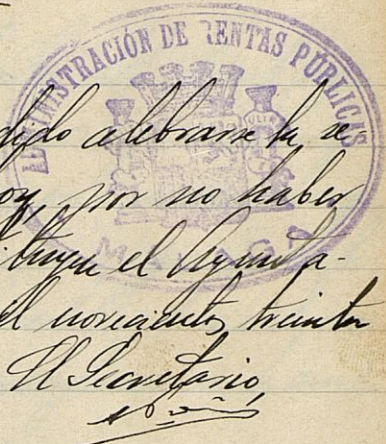 ADMINISTRACIÓN DE RENTAS PÚBLICAS
MALAGA
dido celebrarse la se
oy, por no haber
tituyen el Ayunta-
il novecientos treinta
El Secretario